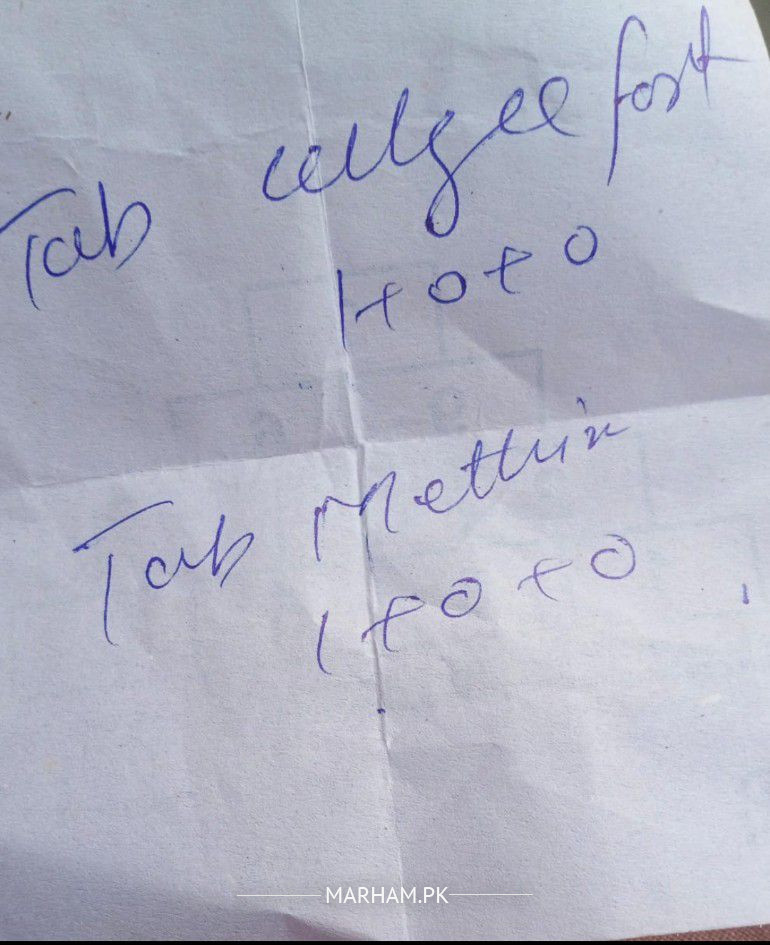 Tab cellgee fort
1+0+0
Tab Methrix
1+0+0
MARHAM.PK